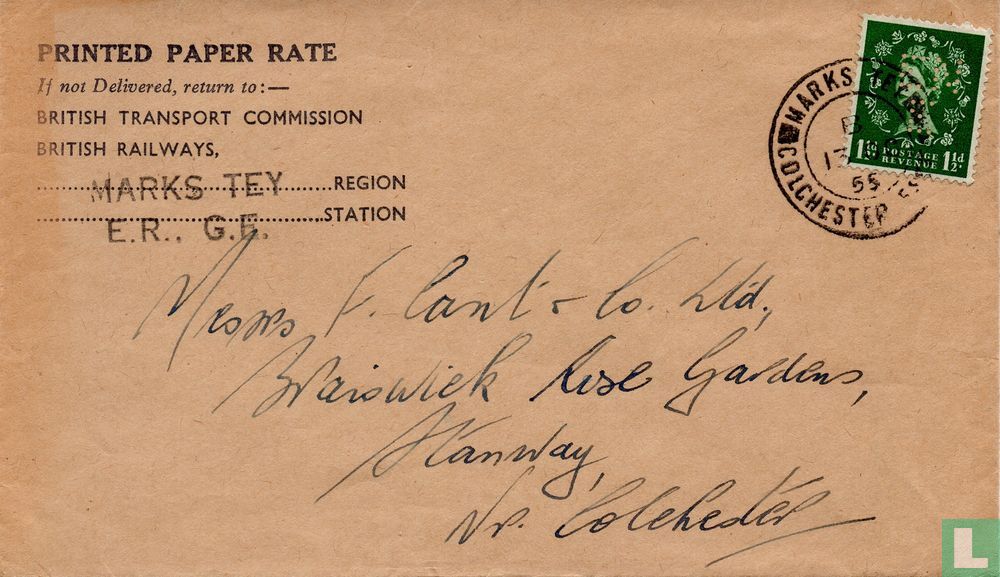 PRINTED PAPER RATE
If not Delivered, return to:—
BRITISH TRANSPORT COMMISSION
BRITISH RAILWAYS,
MARKS TEY REGION
E.R., G.E. STATION
MARKS TEY
B
13
55
COLCHESTER
1½d POSTAGE REVENUE 1½d.
Messrs F. Cant & Co. Ltd.,
Braiswick Rose Gardens,
Stanway,
Nr. Colchester
L